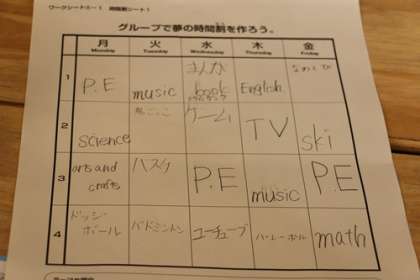 ワークシート5-1 時間割シート1
グループで夢の時間割を作ろう。
月 火 水 木 金
Monday Tuesday Wednesday Thursday Friday
1 P.E music まんが book English
2 science 鬼ごっこ ゲーム TV ski
3 arts and crafts バスケ P.E music P.E
4 ドッジボール バドミントン ユーチューブ バレーボール math